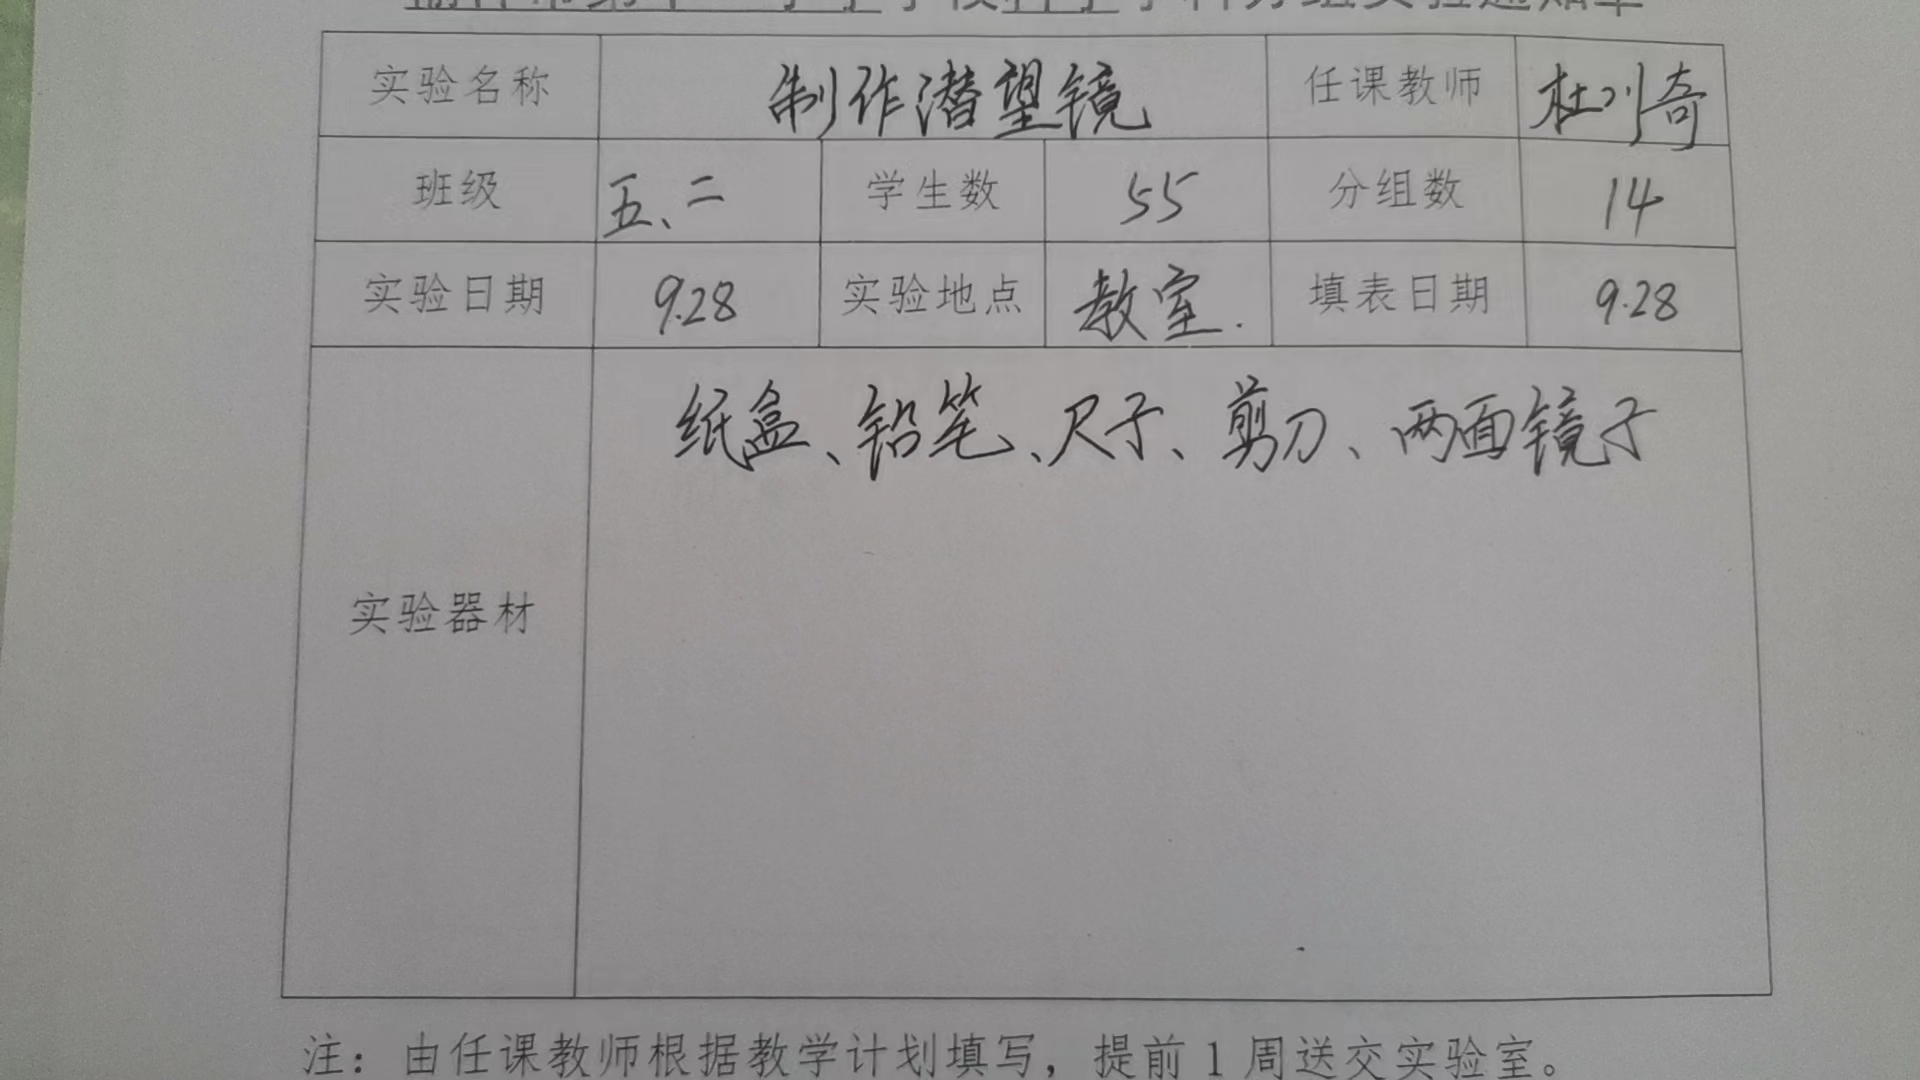 学科分组实验通知单
实验名称 制作潜望镜 任课教师 杜小奇
班级 五、二 学生数 55 分组数 14
实验日期 9.28 实验地点 教室. 填表日期 9.28
纸盒、铅笔、尺子、剪刀、两面镜子
实验器材
注：由任课教师根据教学计划填写，提前1周送交实验室。